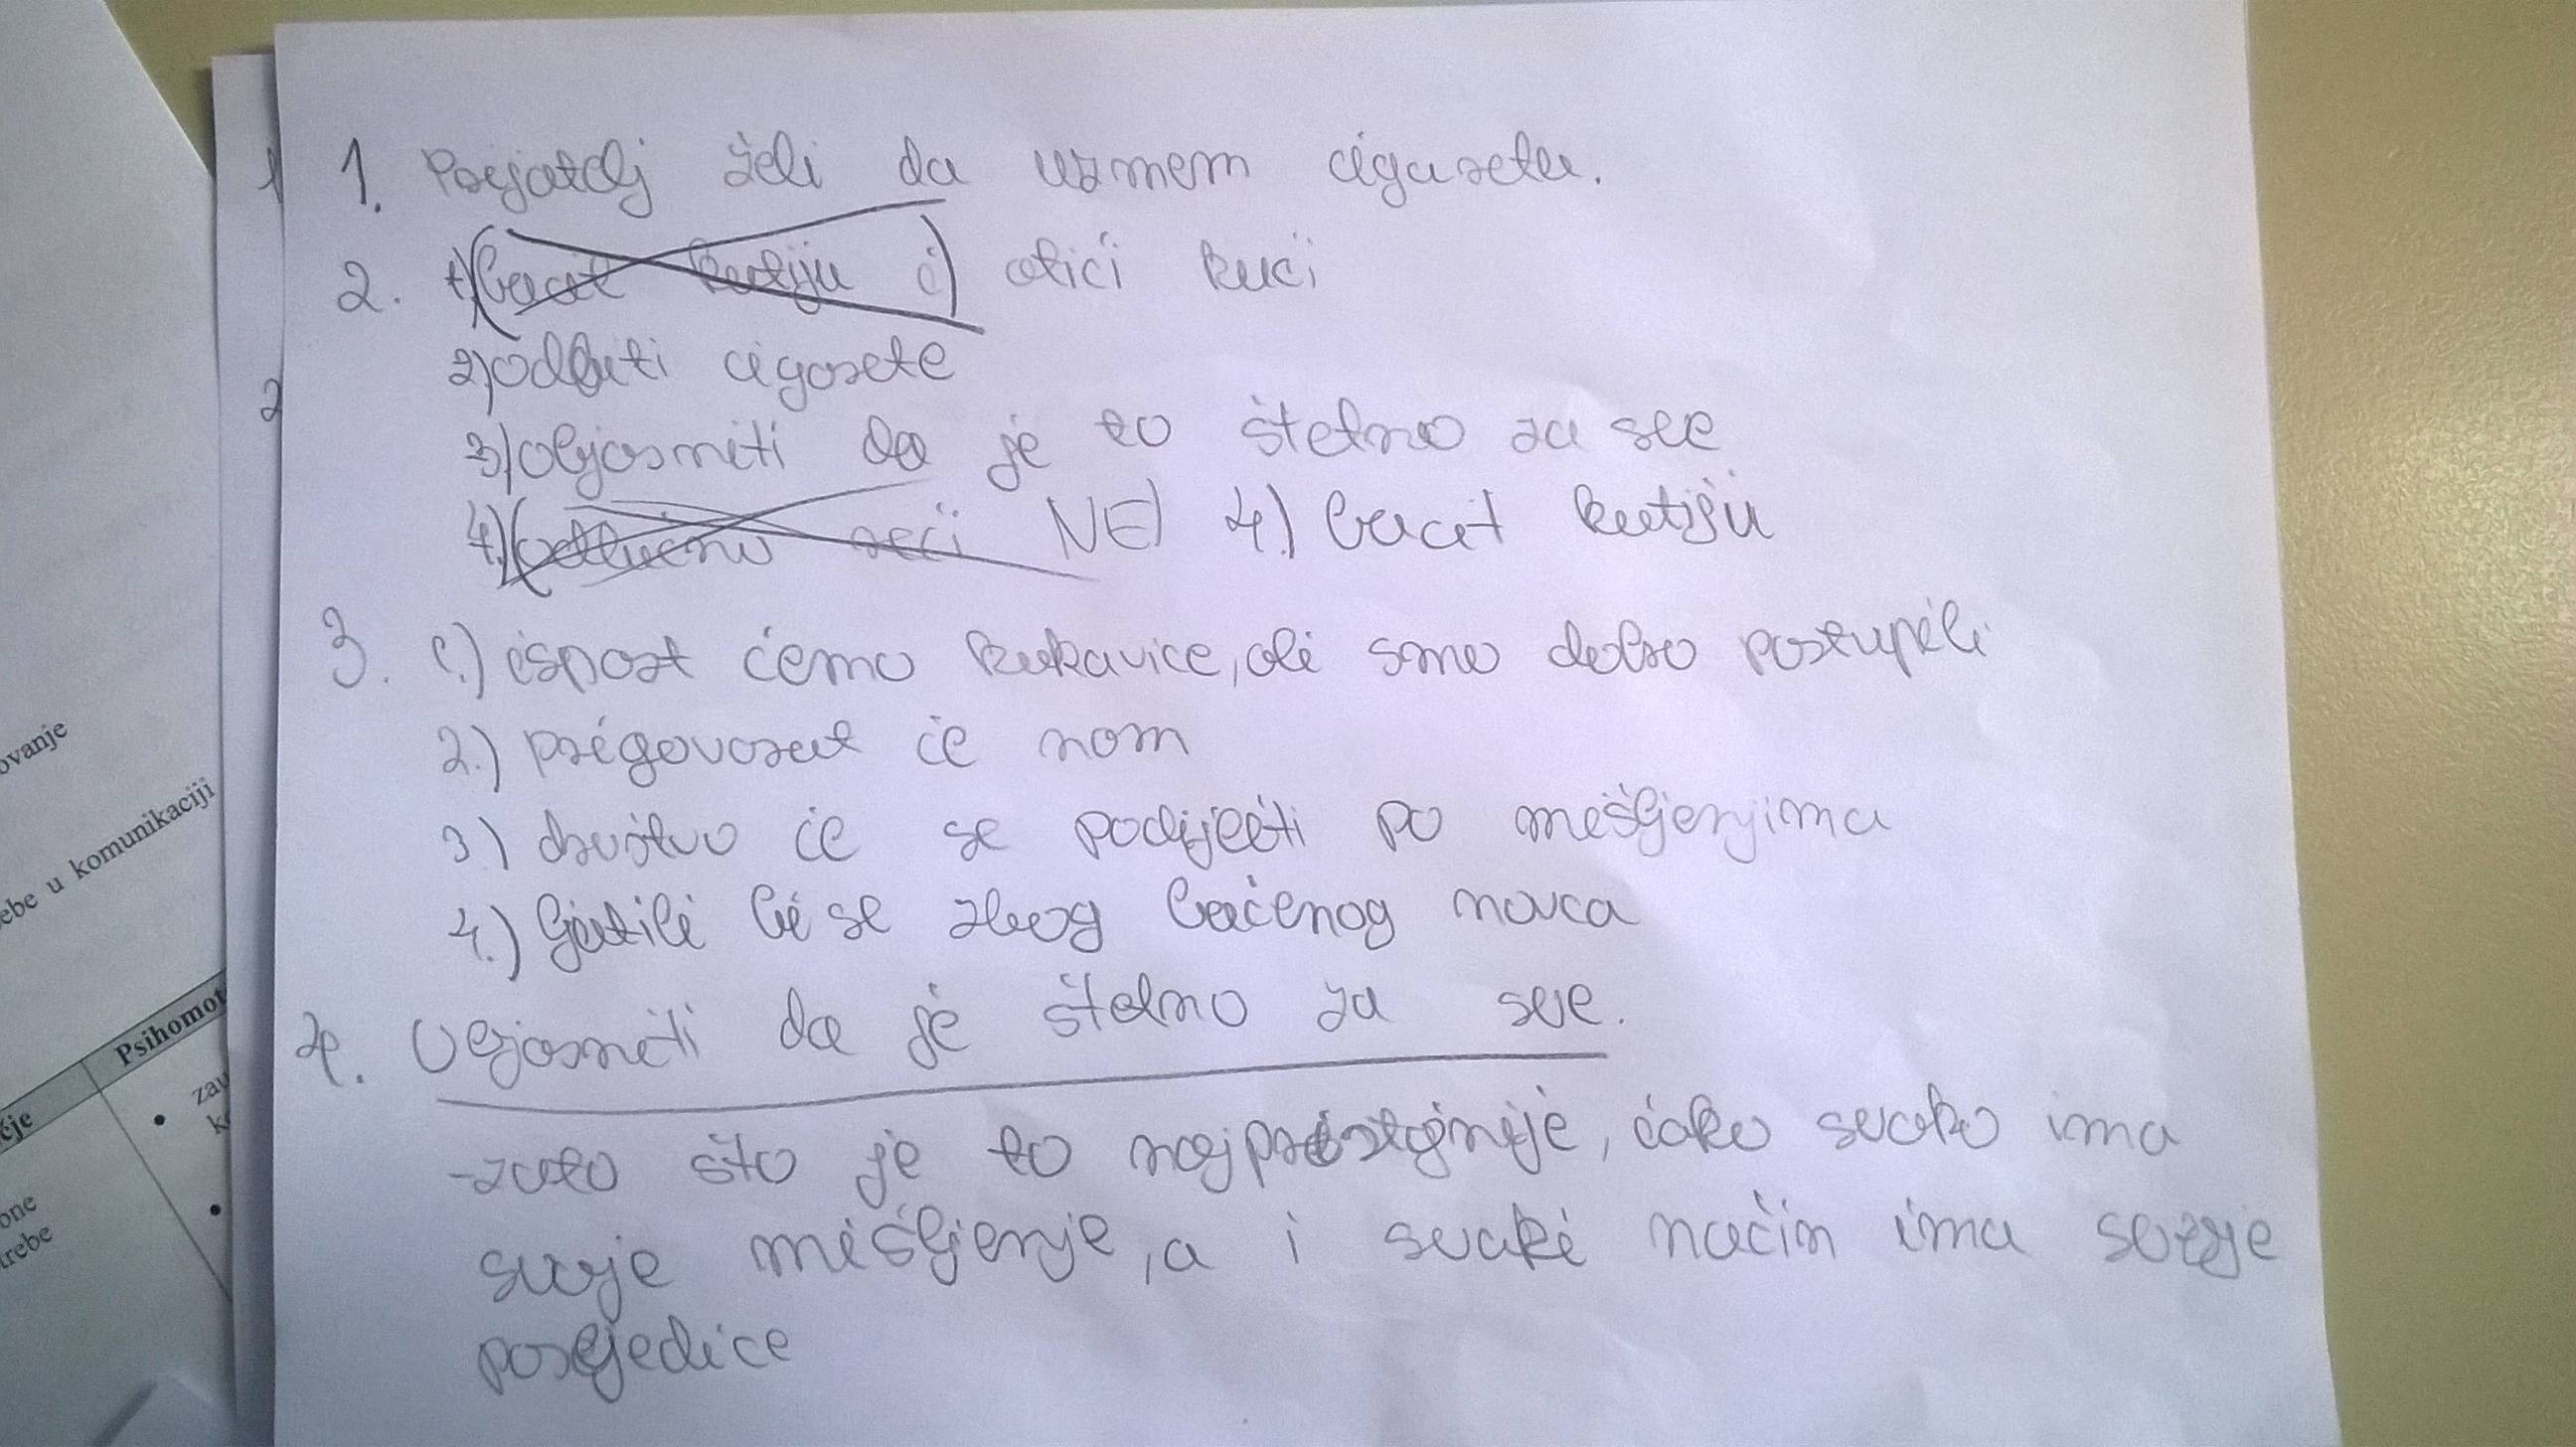 1. Prijatelj želi da uzmem cigaretu.
2. 1) (bacit kutiju i) otići kući
2) odbiti cigarete
3) objasniti da je to štetno za sve
4.) (odlučno reći NE) 4.) bacit kutiju
3. 1.) ispast ćemo kukavice, ali smo dobro postupili
2.) prigovorat će nam
3.) društvo će se podijeliti po mišljenjima
4.) ljutili bi se zbog bačenog novca
4. Objasniti da je štetno za sve.
-zato što je to najpristojnije, iako svako ima
svoje mišljenje, a i svaki način ima svoje
posljedice
1
2
ovanje
ebe u komunikaciji
Psihomot
čje
zau
one
trebe